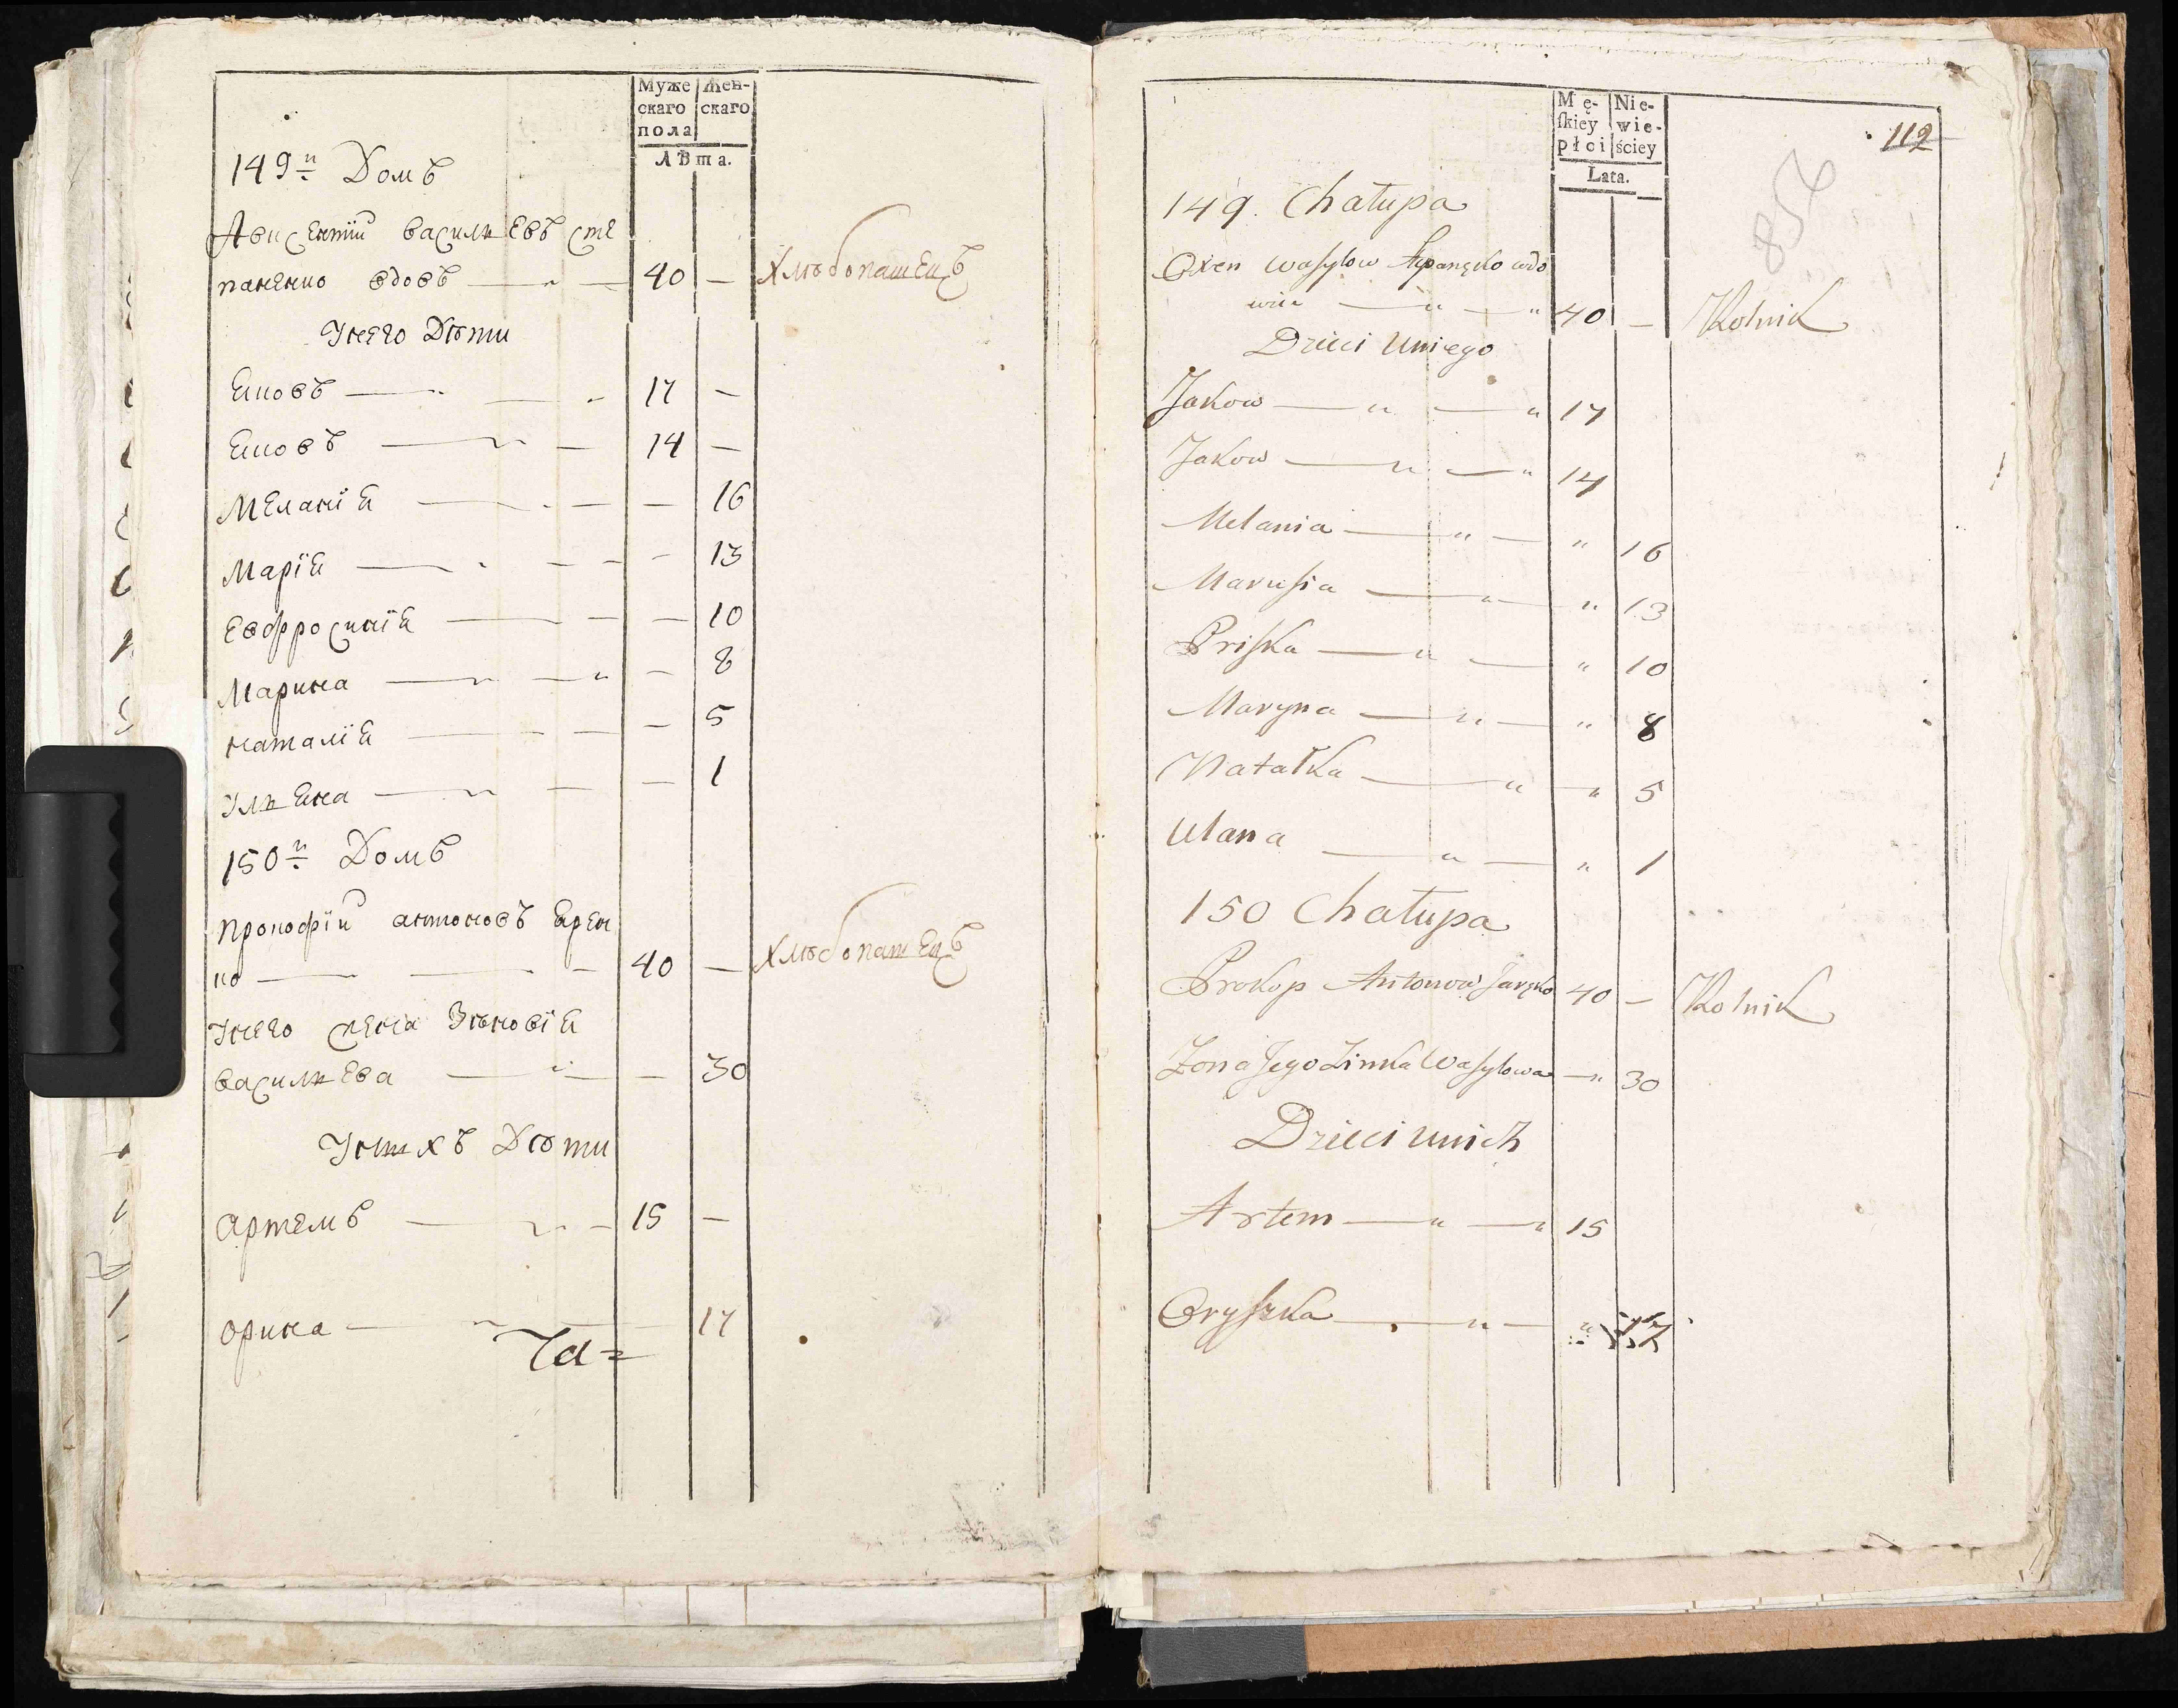 Муже
скаго
пола
Жен-
скаго
Лѣта.
149й Домъ
Авксентій васильевъ сте
паненко вдовъ — 40 — Хлѣбопашецъ
Унего Дѣти
Яковъ — 17 —
Яковъ — 14 —
Меланія — — 16
Марія — — 13
Евфросинія — — 10
Марина — — 8
наталія — — 5
Ульяна — — 1
150й Домъ
прокофій антоновъ Ярен
ко — 40 — Хлѣбопашецъ
Унего жена Зѣновія
васильева — — 30
Унихъ Дѣти
артемъ — 15 —
орина — — 17
Mę-
ſkiey
płci
Nie-
wie-
ściey
Lata.
112
857
149. Chałupa
Oxen Wasylow Stepanęko wdo
wiec — " — " 40 — Rolnik
Dzieci Uniego
Jakow — " — " 17
Jakow — " — " 14
Melania — " — " 16
Marusia — " — " 13
Priska — " — " 10
Maryna — " — " 8
Natałka — " — " 5
Ulana — " — " 1
150 Chałupa
Prokop Antonow Jaręko 40 — Rolnik
Zona Jego Zinka Wasylowa — " 30
Dzieci unich
Artem — " — " 15
Oryszka — " — " 17